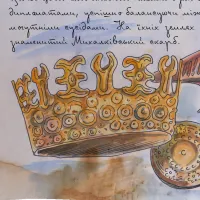 дипломатами, успішно балансуючи між
могутніми сусідами. На їхніх землях
знаменитий Михалківський скарб.